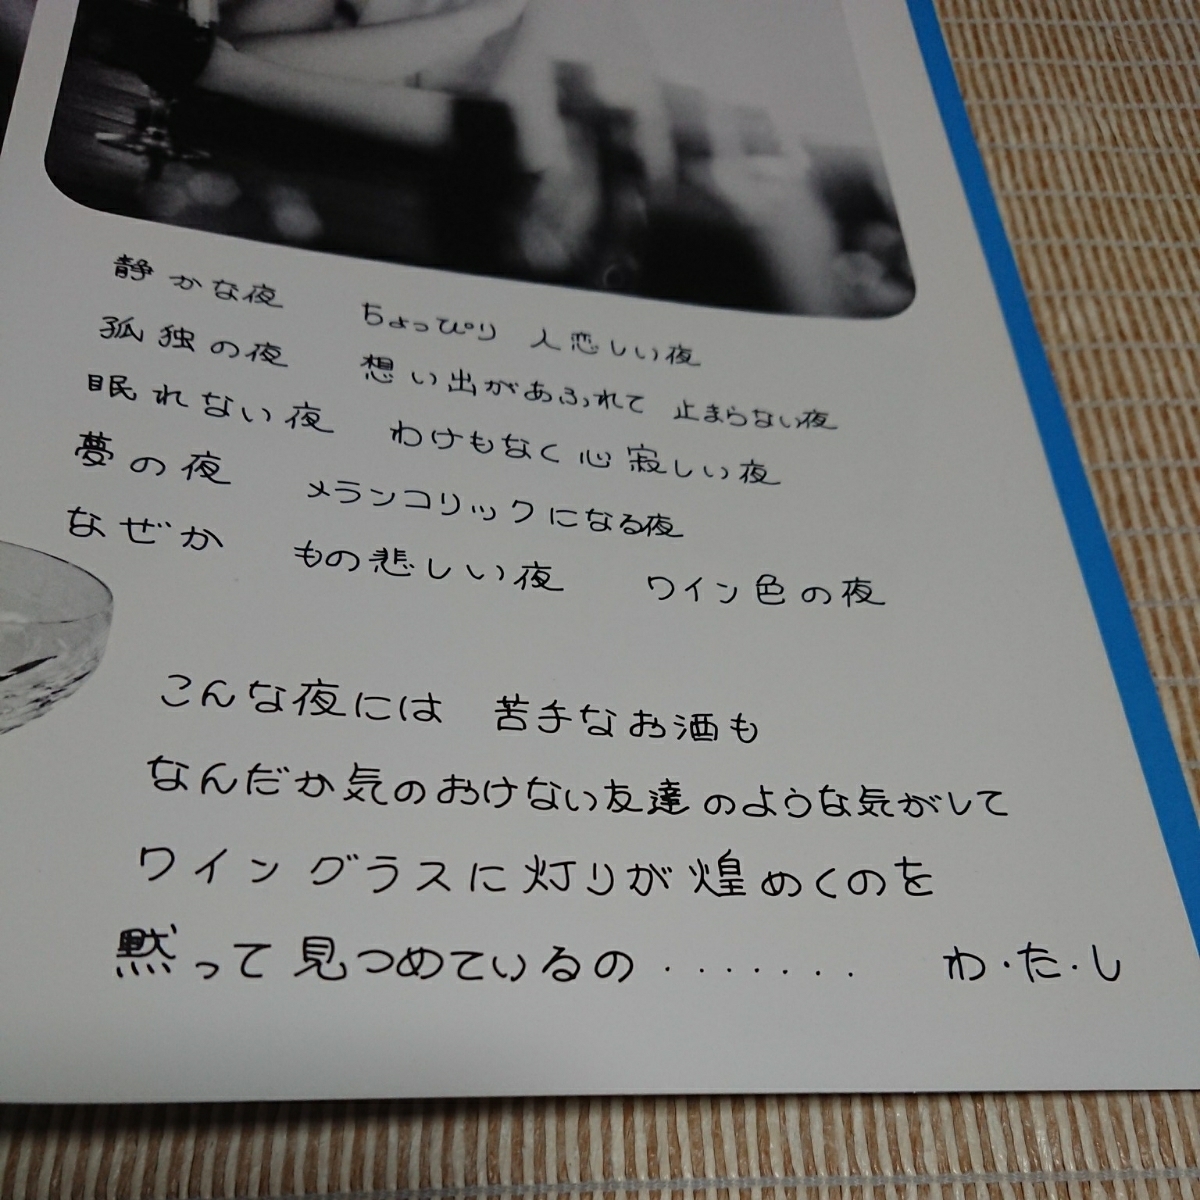 静かな夜　ちょっぴり　人恋しい夜
孤独の夜　想い出があふれて　止まらない夜
眠れない夜　わけもなく心寂しい夜
夢の夜　メランコリックになる夜
なぜか　もの悲しい夜　ワイン色の夜
こんな夜には　苦手なお酒も
なんだか気のおけない友達のような気がして
ワイングラスに灯りが煌めくのを
黙って見つめているの・・・・・・・　わ・た・し